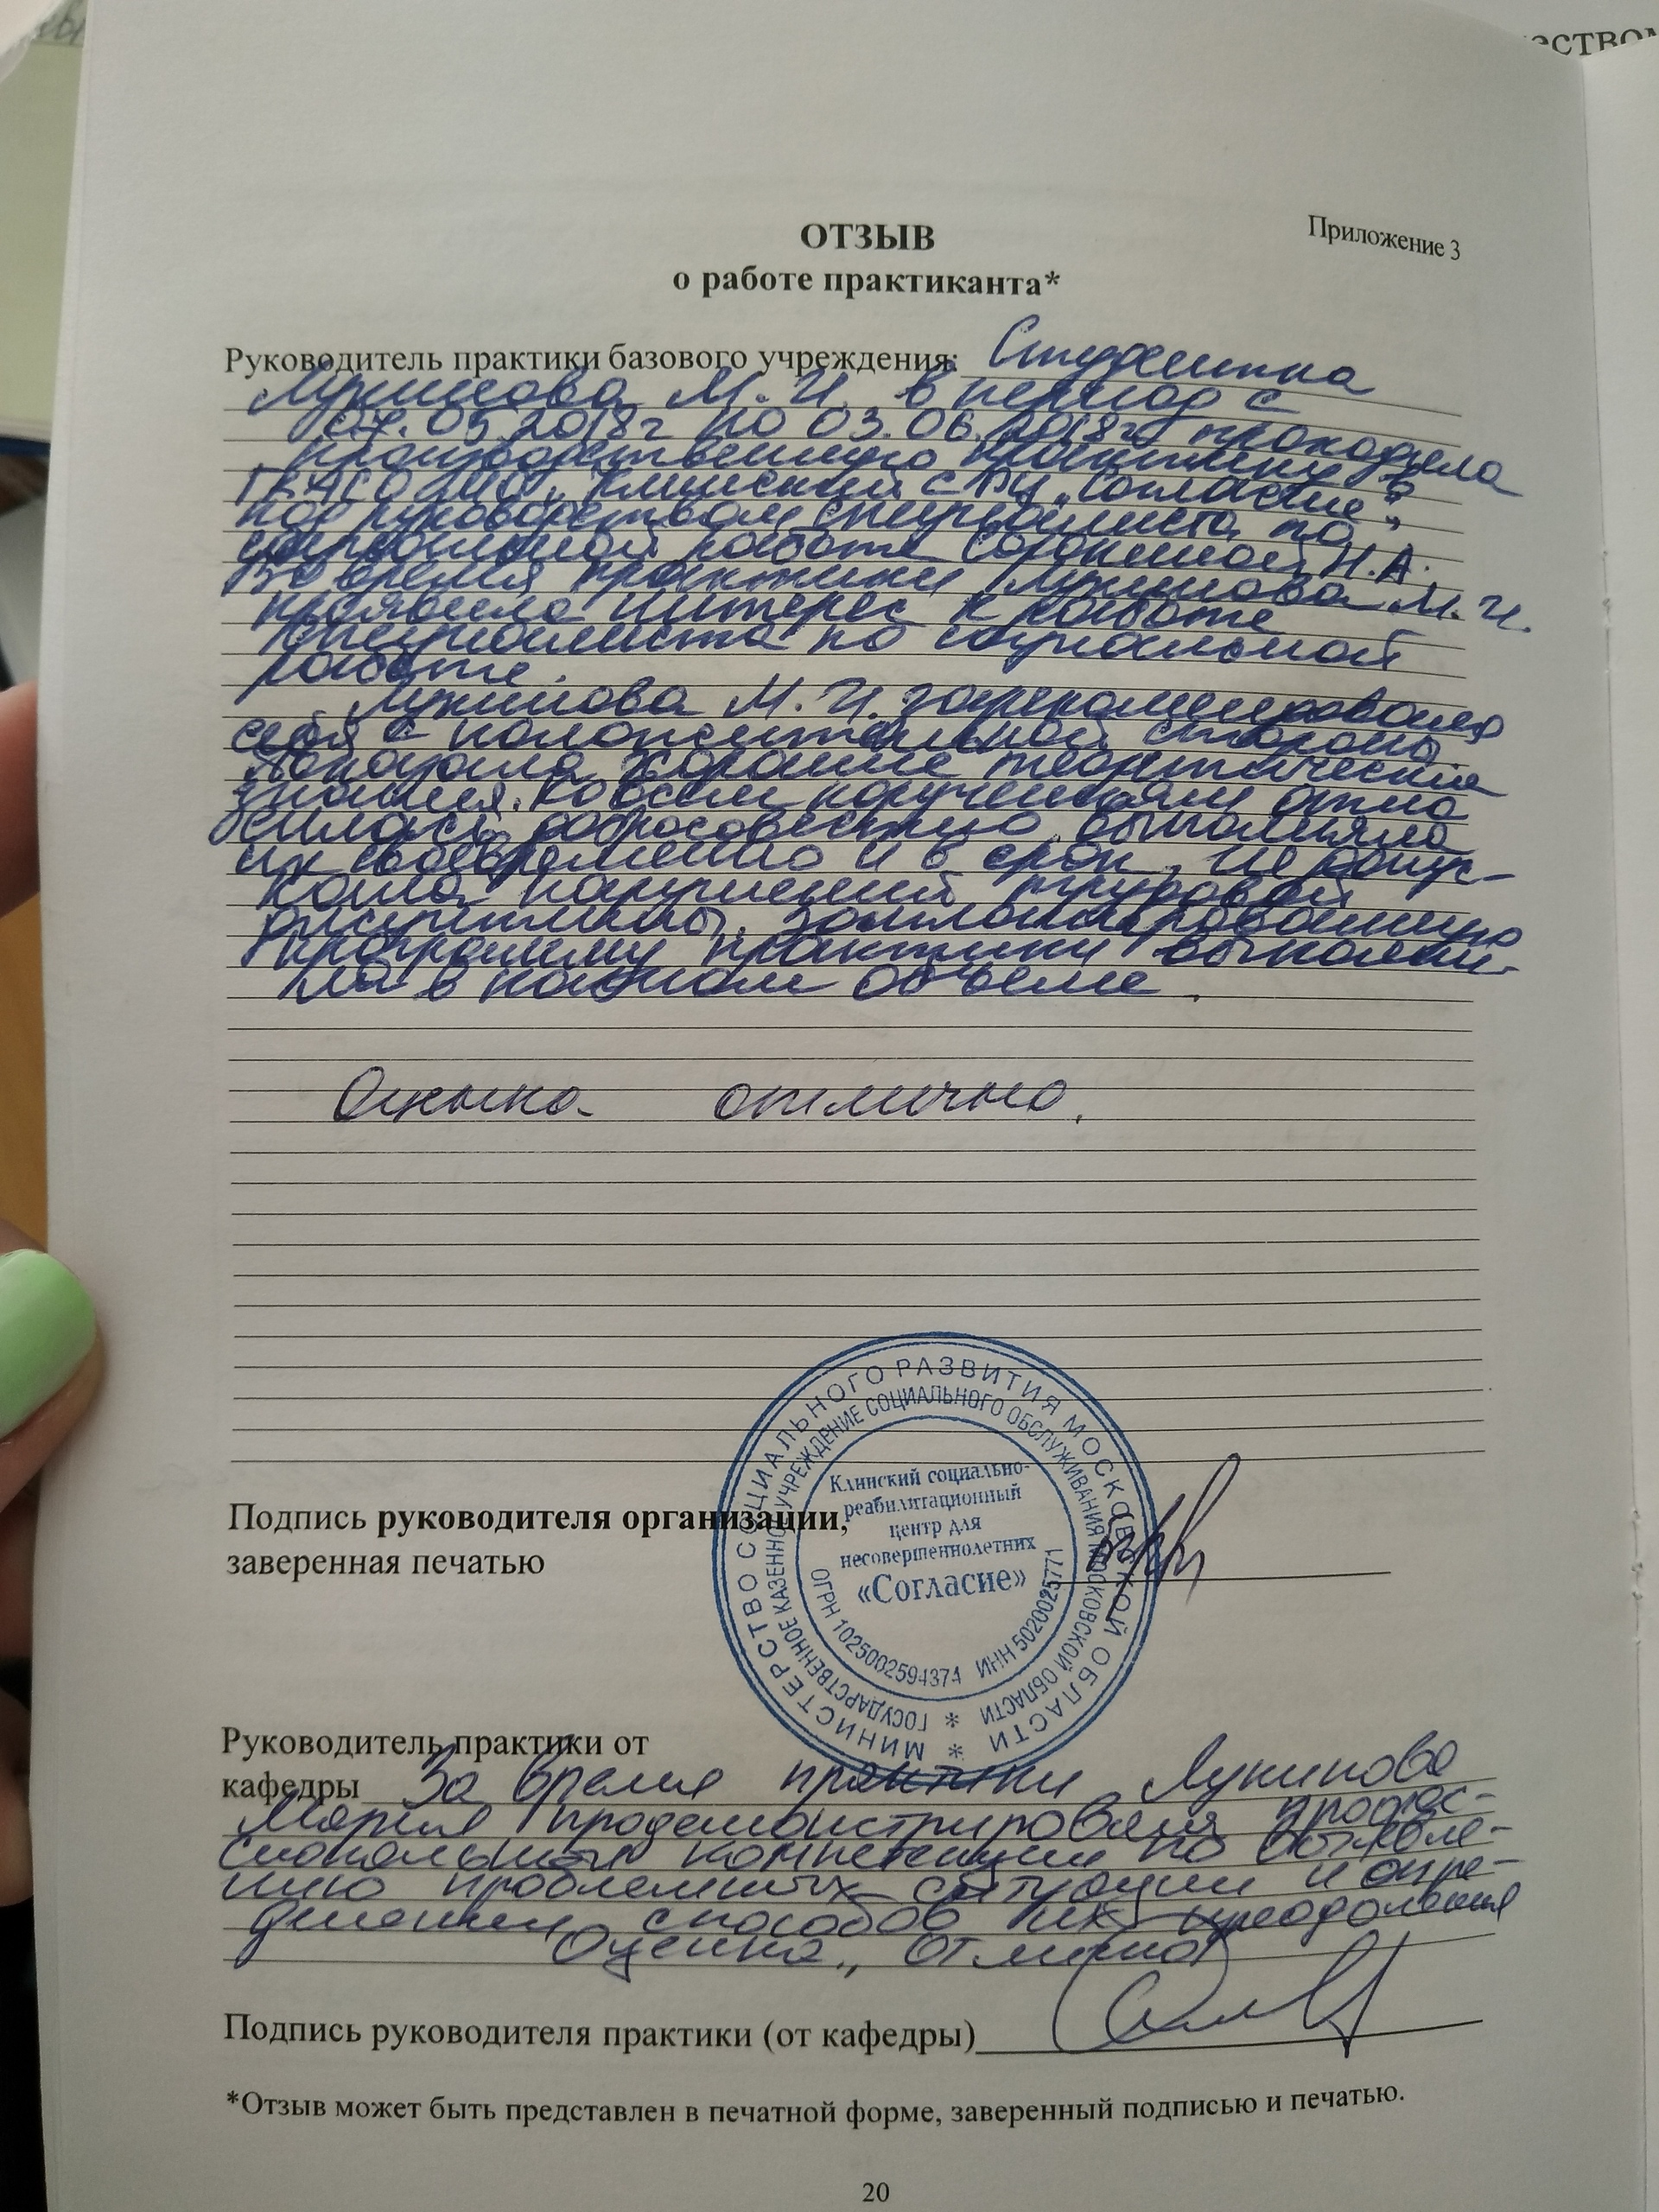 еством
Приложение 3
ОТЗЫВ
о работе практиканта*
Руководитель практики базового учреждения: Студентка
Лукинова М.И. в период с
07.05.2018г по 03.06.2018г. проходила
производственную практику в
ГКУСО МО "Клинский СРЦ "Согласие",
под руководством специалиста по
социальной работе Сорокиной Н.А.
Во время практики Лукинова М.И.
проявила интерес к работе
специалиста по социальной
работе.
Лукинова М.И. зарекомендовала
себя с положительной стороны,
показала хорошие теоретические
знания. Ко всем поручениям отно
силась добросовестно, выполняла
их своевременно и в срок, не допус-
кала нарушений трудовой
дисциплины. Запланированную
программу практики выполни-
ла в полном объеме.
Оценка отлично.
Подпись руководителя организации,
заверенная печатью
МИНИСТЕРСТВО СОЦИАЛЬНОГО РАЗВИТИЯ МОСКОВСКОЙ ОБЛАСТИ *
ГОСУДАРСТВЕННОЕ КАЗЕННОЕ УЧРЕЖДЕНИЕ СОЦИАЛЬНОГО ОБСЛУЖИВАНИЯ МОСКОВСКОЙ ОБЛАСТИ *
Клинский социально-
реабилитационный
центр для
несовершеннолетних
«Согласие»
ОГРН 1025002594374 ИНН 5020025771
Руководитель практики от
кафедры За время практики Лукинова
Мария продемонстрировала профес-
сиональные компетенции по выявле-
нию проблемных ситуации и опре-
делении способов их преодоления
Оценка "Отлично"
Подпись руководителя практики (от кафедры)
*Отзыв может быть представлен в печатной форме, заверенный подписью и печатью.
20